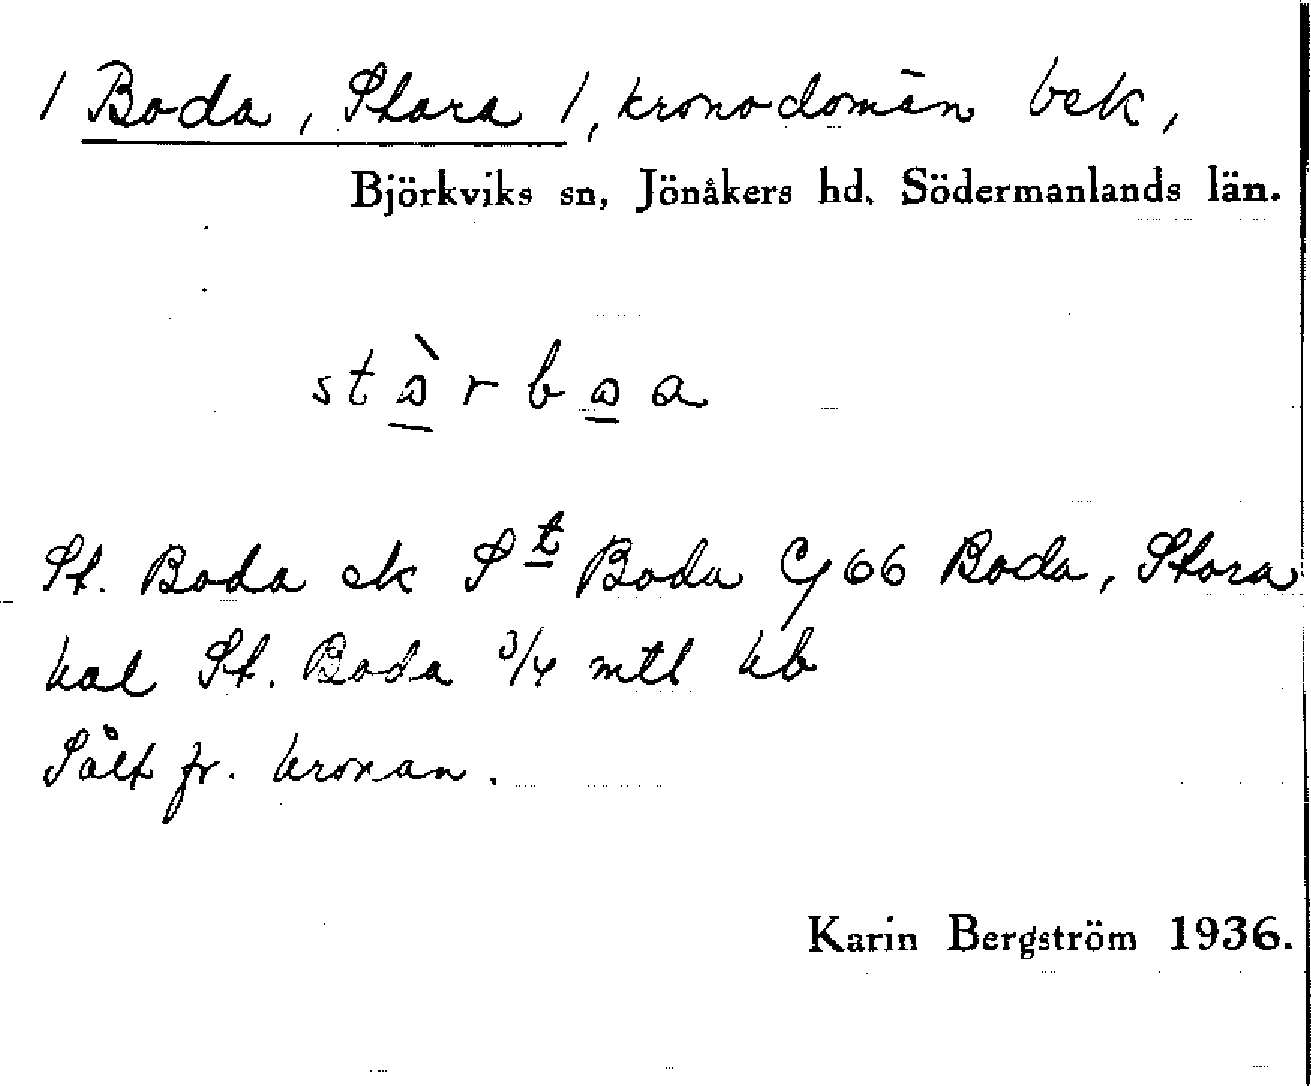 / Boda, Stora /, kronodomän bek,
Björkviks sn, Jönåkers hd, Södermanlands län.
st
St. Boda ek S:t Boda Cy 66 Boda, Stora
kal St. Boda 3/4 mtl kb
Sålt fr. kronan.
Karin Bergström 1936.